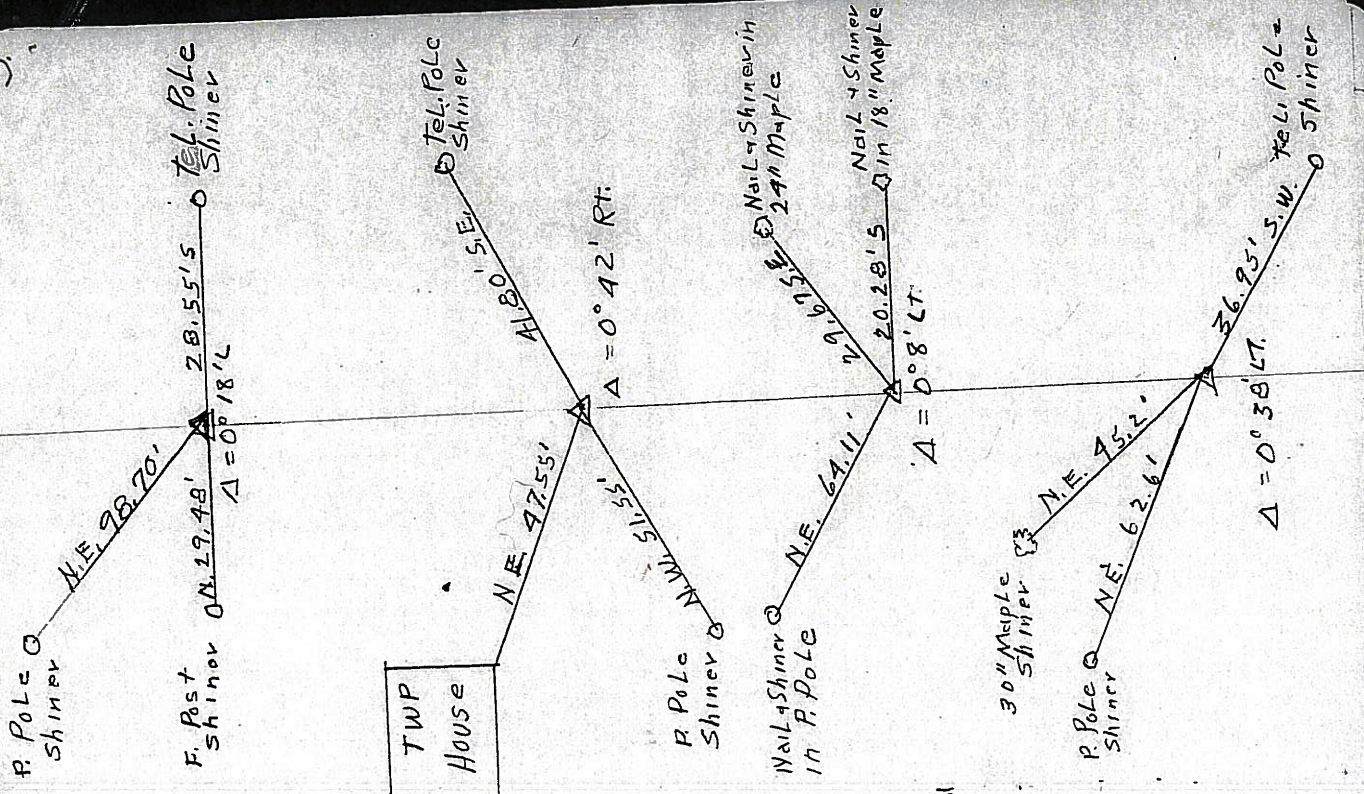 P. Pole
Shiner
N.E. 98.70'
F. Post
Shiner
N. 29.48'
28.55' S
Tel. Pole
Shiner
Δ = 0° 18' L
TWP
House
N.E. 47.55'
41.80' S.E.
Tel. Pole
Shiner
Δ = 0° 42' Rt.
N.W. 51.55'
P. Pole
Shiner
Nail & Shiner
in P. Pole
N.E. 64.11'
29.67 S.E.
Nail & Shiner in
24" Maple
20.28' S
Nail & Shiner
in 18" Maple
Δ = 0° 8' Lt.
30" Maple
Shiner
N.E. 45.2'
P. Pole
Shiner
N.E. 62.6'
36.95' S.W.
Tel. Pole
Shiner
Δ = 0° 38' LT.